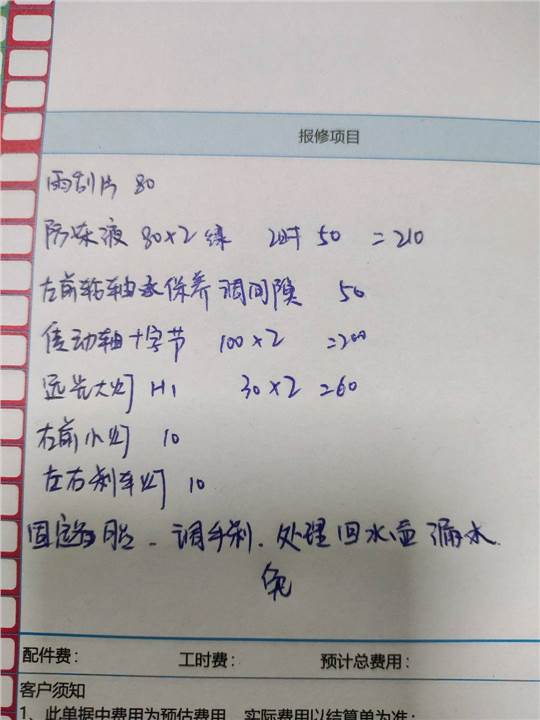 报修项目
雨刮片 80
防冻液 80×2 绿 工时 50 =210
左前轮轴承保养调间隙 50
传动轴十字节 100×2 =200
远光大灯 H1 30×2 =60
右前小灯 10
左右刹车灯 10
调手刹.处理回水壶漏水.
免
配件费: 工时费: 预计总费用:
客户须知
1、此单据中费用为预估费用,实际费用以结算单为准;